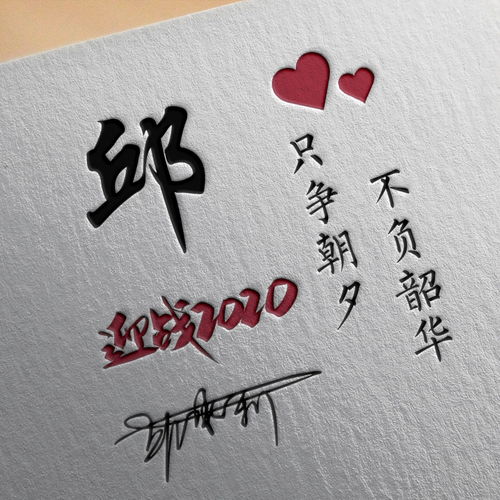 邱
只争朝夕
不负韶华
迎战2020